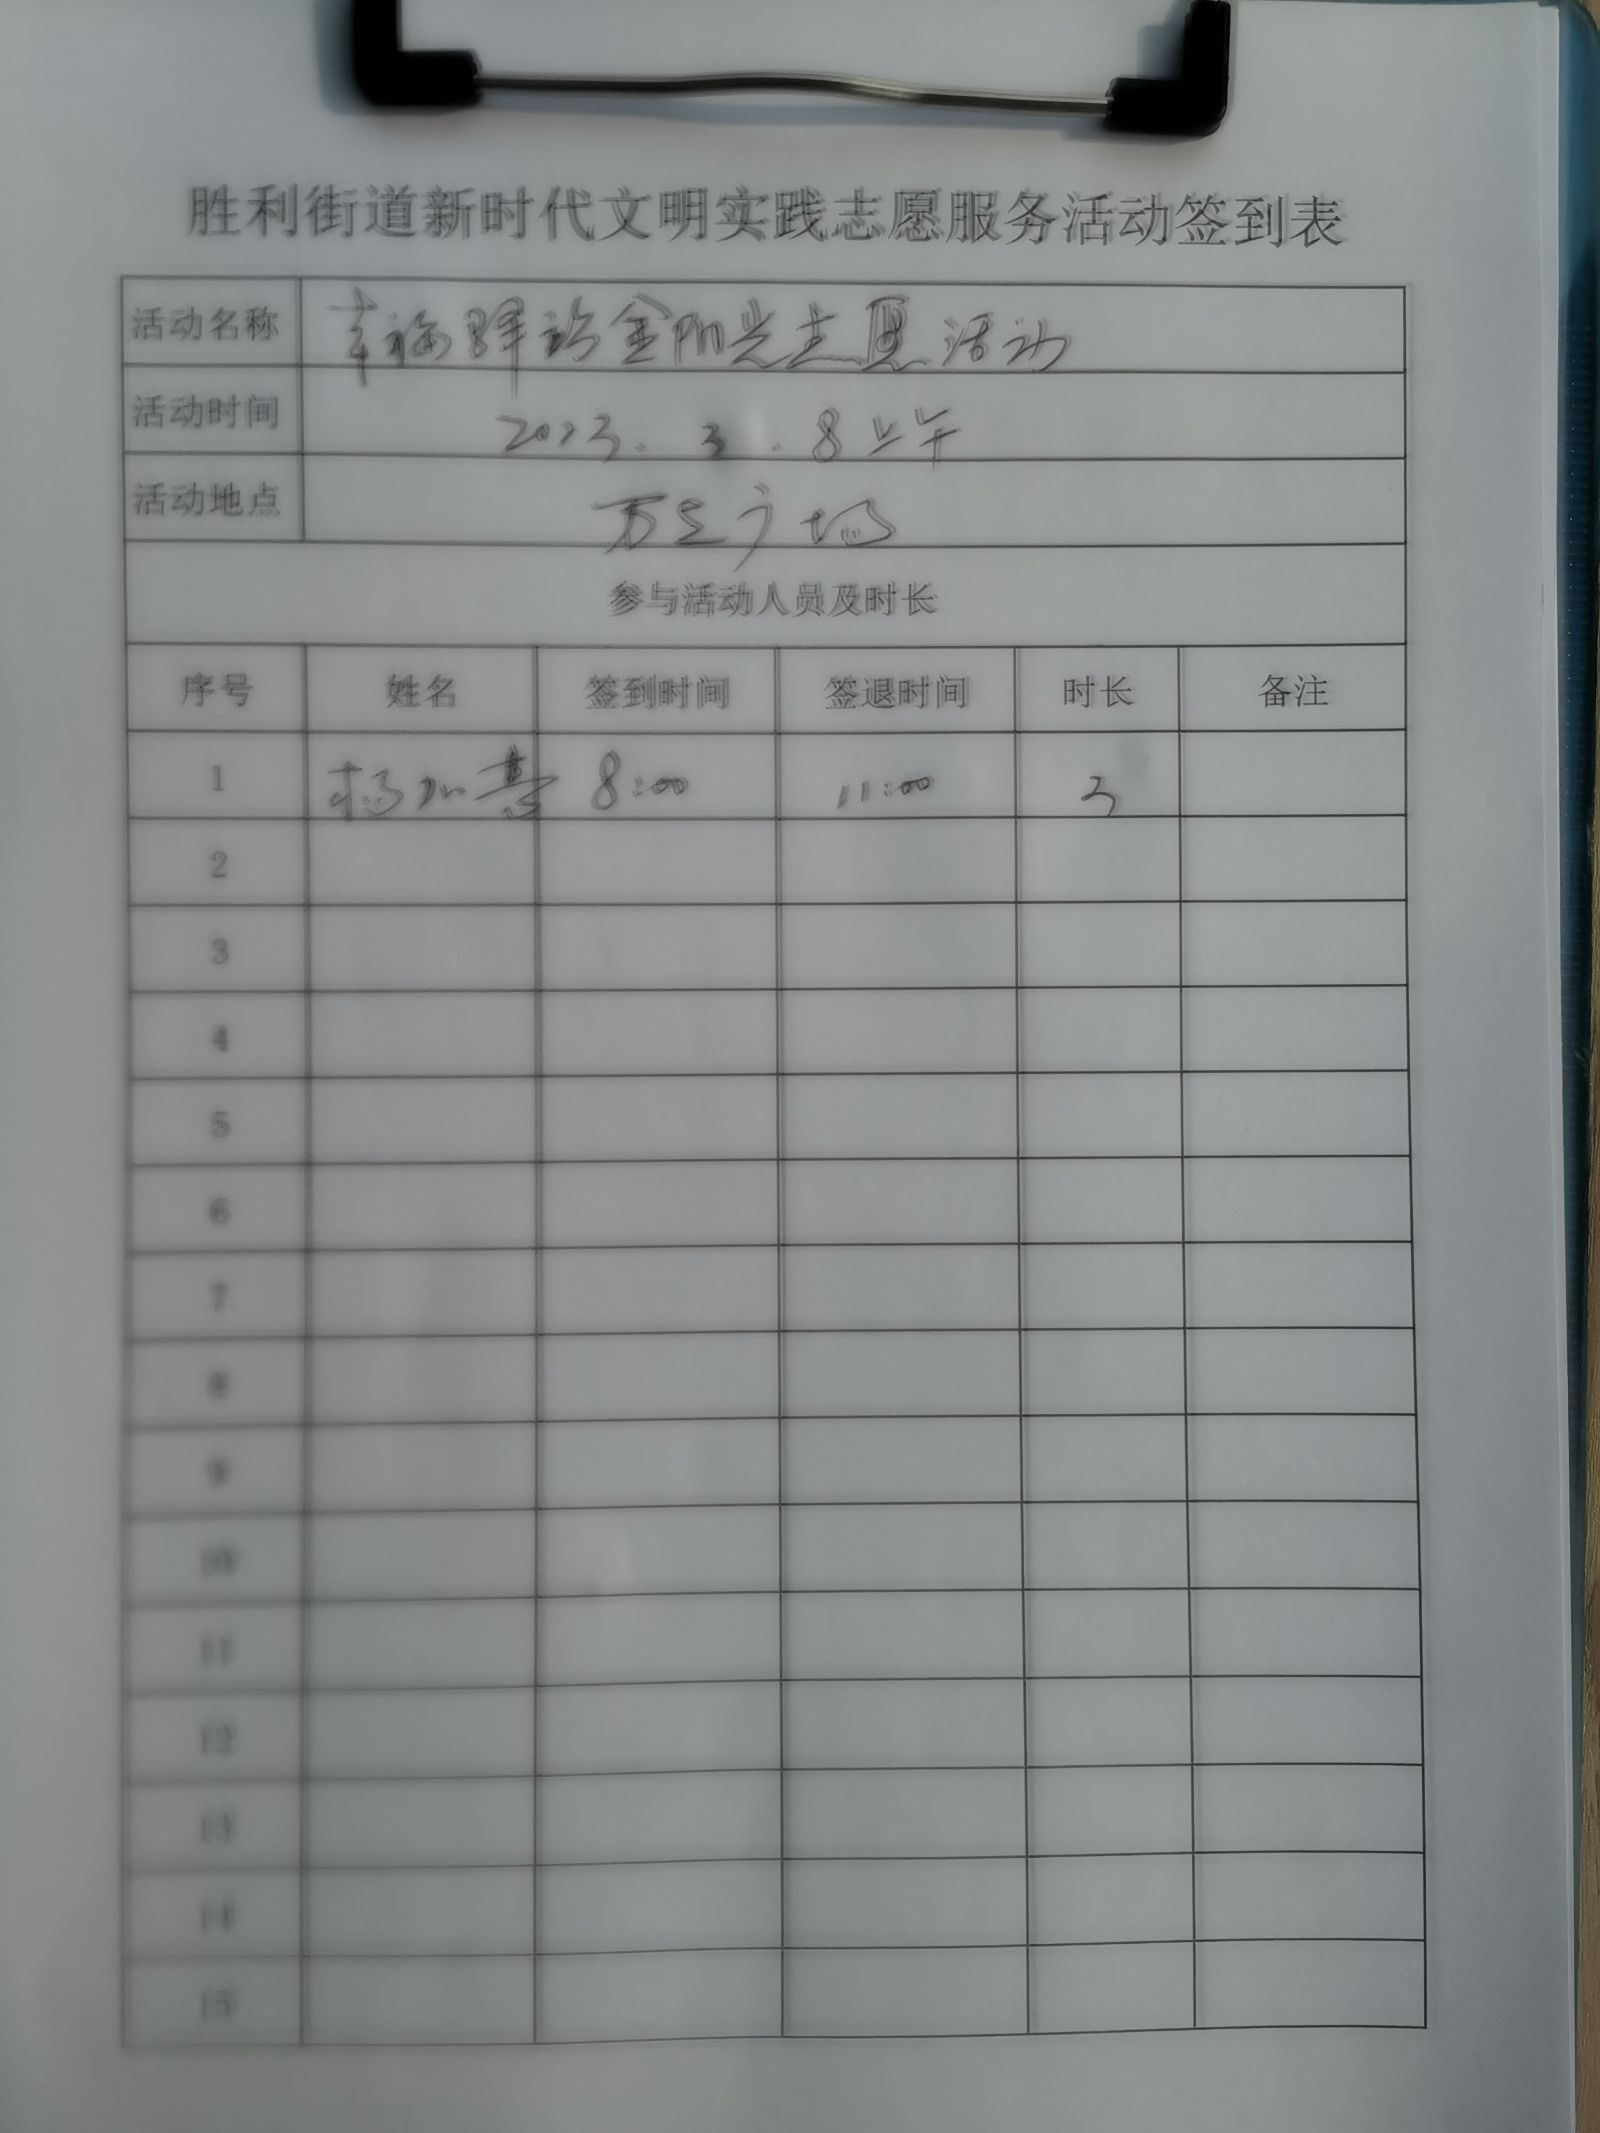 胜利街道新时代文明实践志愿服务活动签到表
活动名称 幸福驿站金阳光志愿活动
活动时间 2023.3.8上午
活动地点 万达广场
参与活动人员及时长
序号 姓名 签到时间 签退时间 时长 备注
1 杨加慧 8:00 11:00 3
2
3
4
5
6
7
8
9
10
11
12
13
14
15